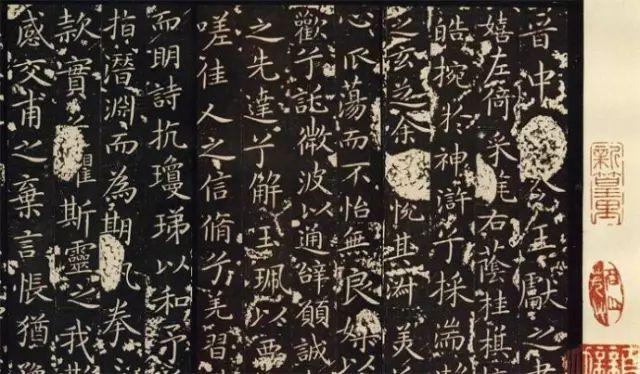 晉中王獻之書
嬉左倚采旄右蔭桂旗
皓捥於神滸兮採湍瀨
之玄芝余悅其淑美
心振蕩而不怡無良媒
歡兮託微波以通辭願誠
之先達兮解玉珮以要
嗟佳人之信脩兮羌習
而明詩抗瓊珶以和予
指潛淵而為期執拳
款實懼斯靈之我欺
感交甫之棄言悵猶豫